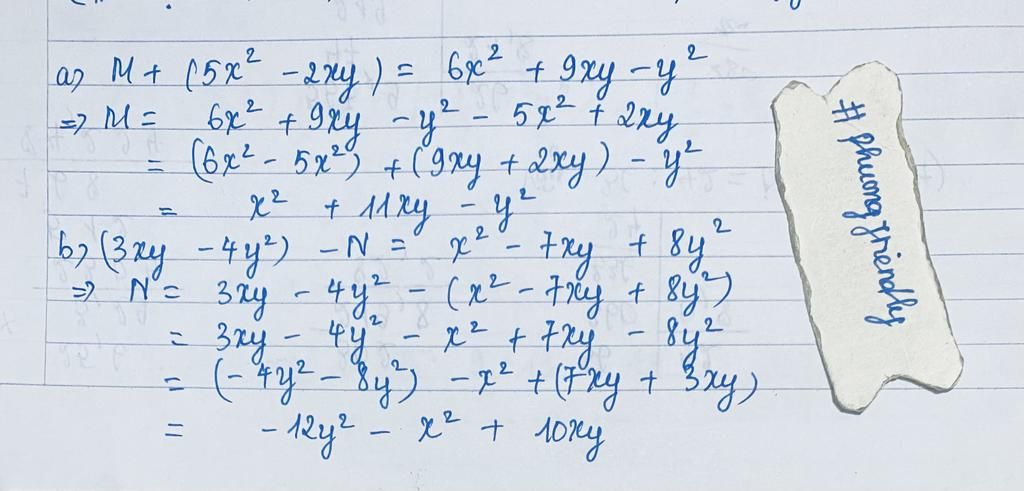 a) M + (5x² - 2xy) = 6x² + 9xy - y²
=> M = 6x² + 9xy - y² - 5x² + 2xy
= (6x² - 5x²) + (9xy + 2xy) - y²
= x² + 11xy - y²
b) (3xy - 4y²) - N = x² - 7xy + 8y²
=> N = 3xy - 4y² - (x² - 7xy + 8y²)
= 3xy - 4y² - x² + 7xy - 8y²
= (-4y² - 8y²) - x² + (7xy + 3xy)
= -12y² - x² + 10xy
# phuongfriendly